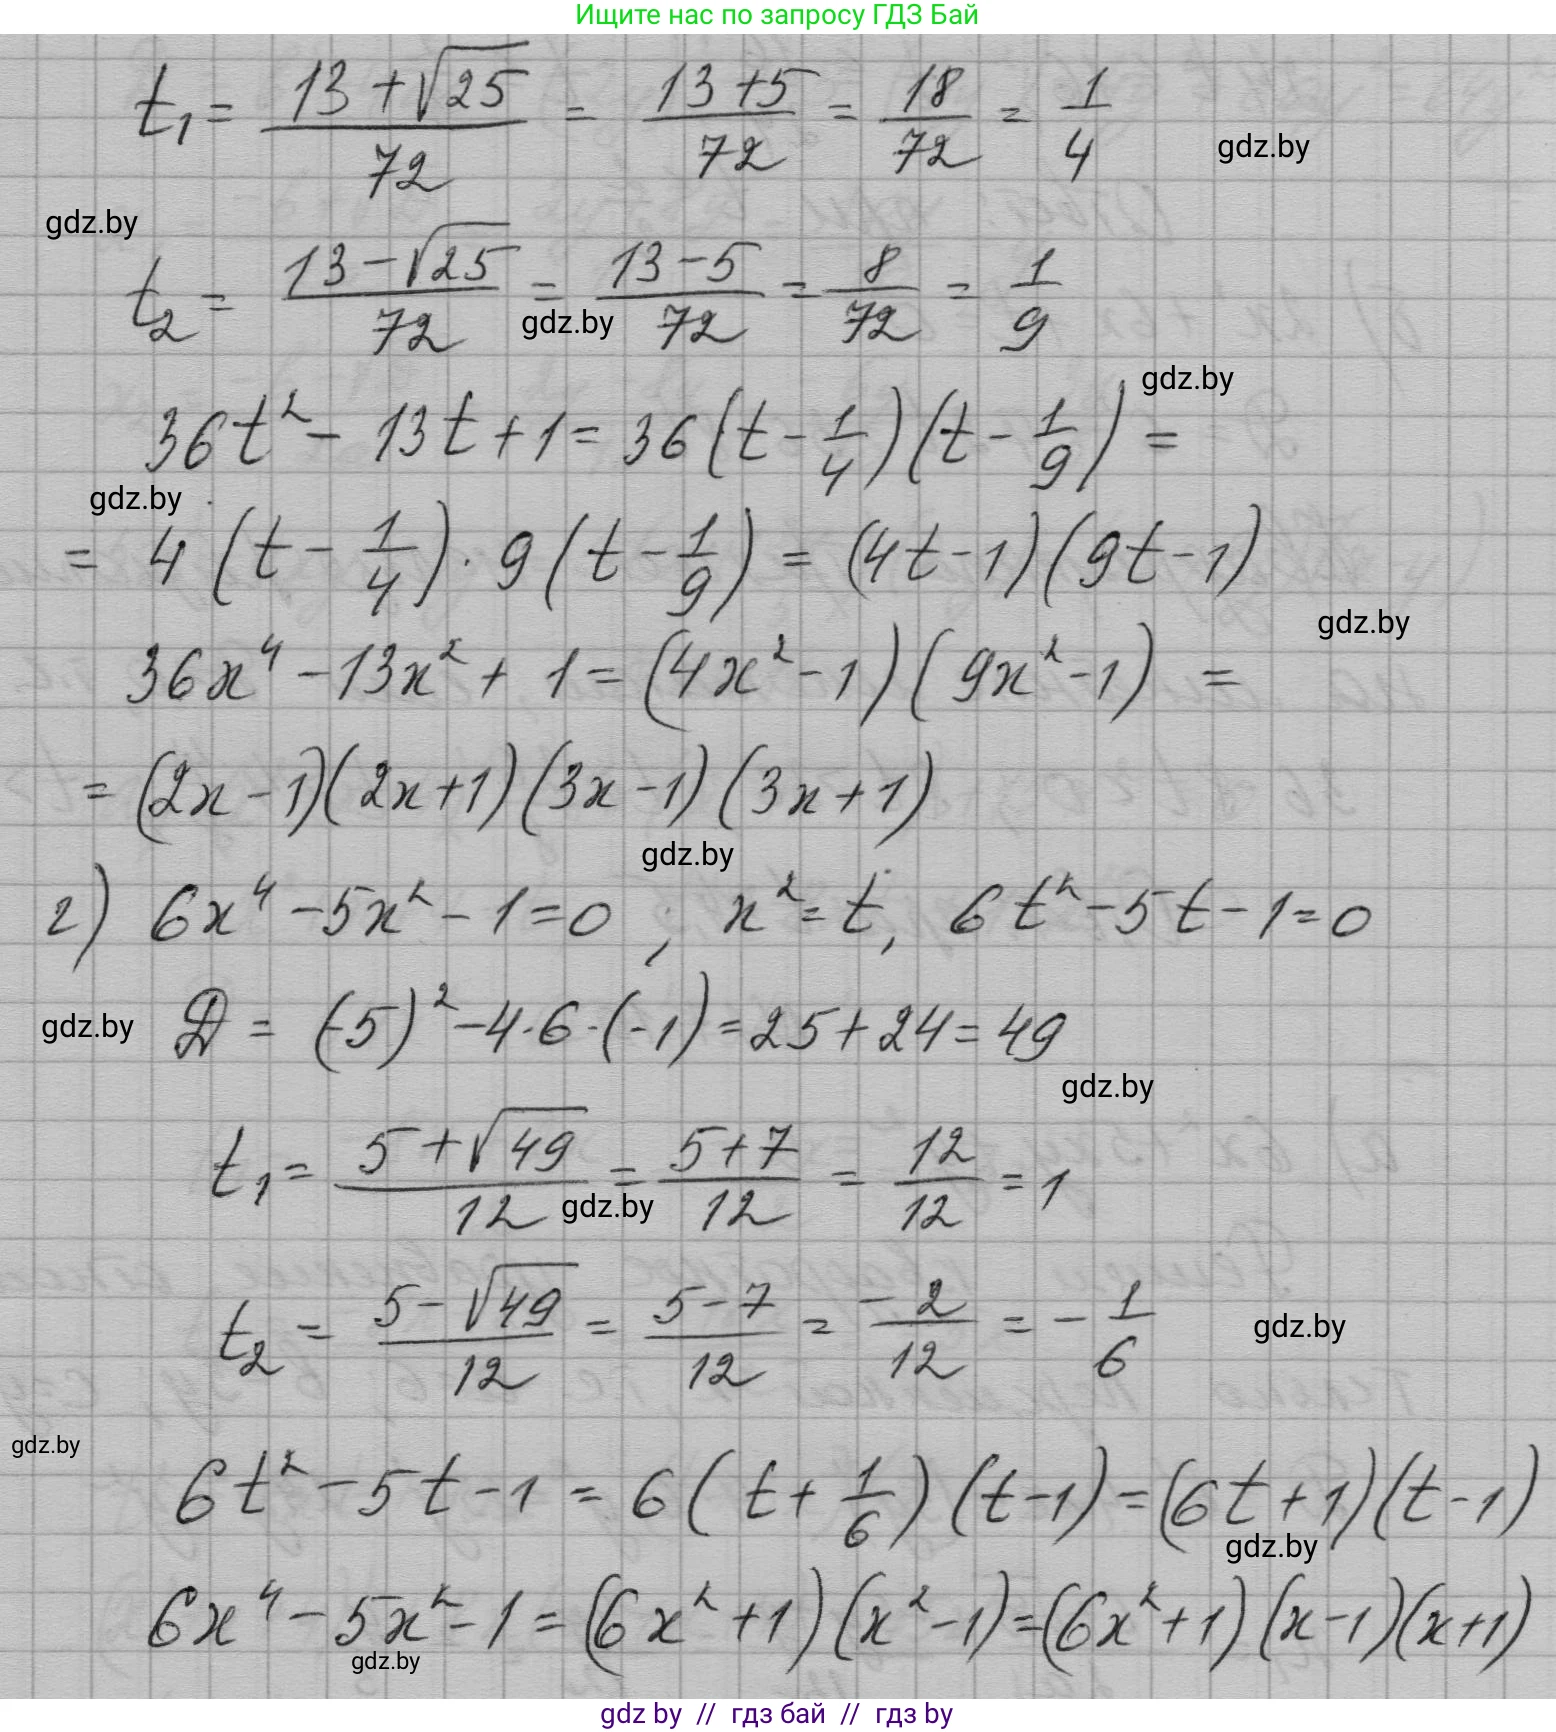 Ищите нас по запросу ГДЗ Бай
t₁ = (13 + √25)/72 = (13 + 5)/72 = 18/72 = 1/4
gdz.by
gdz.by
t₂ = (13 − √25)/72 = (13 − 5)/72 = 8/72 = 1/9
gdz.by
gdz.by
36t² − 13t + 1 = 36(t − 1/4)(t − 1/9) =
gdz.by
= 4(t − 1/4) · 9(t − 1/9) = (4t − 1)(9t − 1)
gdz.by
36x⁴ − 13x² + 1 = (4x² − 1)(9x² − 1) =
= (2x − 1)(2x + 1)(3x − 1)(3x + 1)
gdz.by
г) 6x⁴ − 5x² − 1 = 0; x² = t, 6t² − 5t − 1 = 0
gdz.by
D = (−5)² − 4 · 6 · (−1) = 25 + 24 = 49
gdz.by
t₁ = (5 + √49)/12 = (5 + 7)/12 = 12/12 = 1
gdz.by
t₂ = (5 − √49)/12 = (5 − 7)/12 = −2/12 = −1/6
gdz.by
gdz.by
6t² − 5t − 1 = 6(t + 1/6)(t − 1) = (6t + 1)(t − 1)
gdz.by
6x⁴ − 5x² − 1 = (6x² + 1)(x² − 1) = (6x² + 1)(x − 1)(x + 1)
gdz.by
gdz by // гдз бай // гдз by